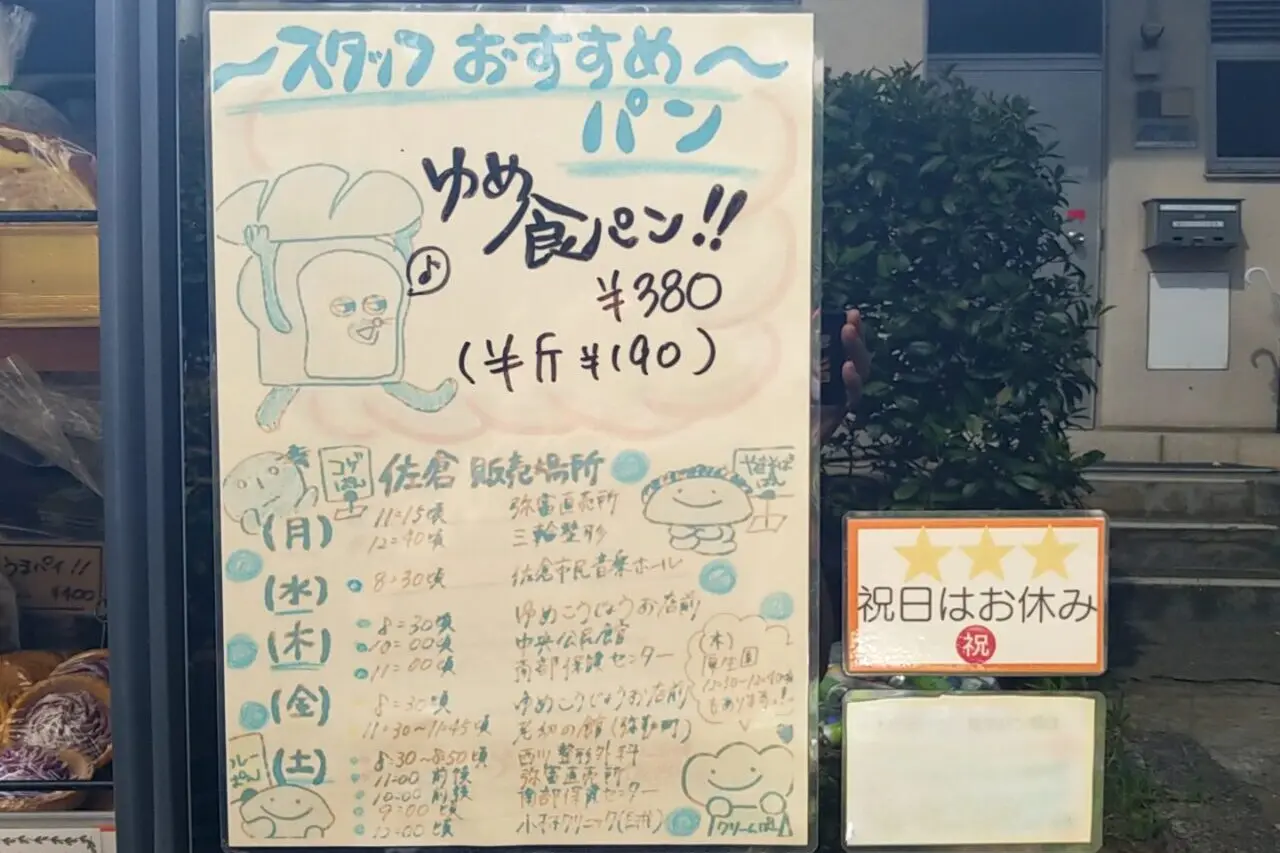 〜スタッフ おすすめ〜
パン
ゆめ食パン!!
♪
¥380
(半斤 ¥190)
コゲぱん
佐倉 販売場所
やきそばぱん
(月) 11:15頃 弥富直売所
12:40頃 三輪整形
(水) 8:30頃 佐倉市民音楽ホール
(木) 8:30頃 ゆめこうじょうお店前
10:00頃 中央公民館
11:00頃 南部保健センター
(木)
厚生園
12:30~12:40頃
もあります!!
(金) 8:30頃 ゆめこうじょうお店前
11:30~11:45頃 の館(弥勒町)
(土) 8:30~8:50頃 西川整形外科
11:00 前後 弥富直売所
10:00 前後 南部保健センター
9:00頃
12:00頃 小林クリニック
ぱん
クリームぱん
祝日はお休み
祝
パイ!!
¥400